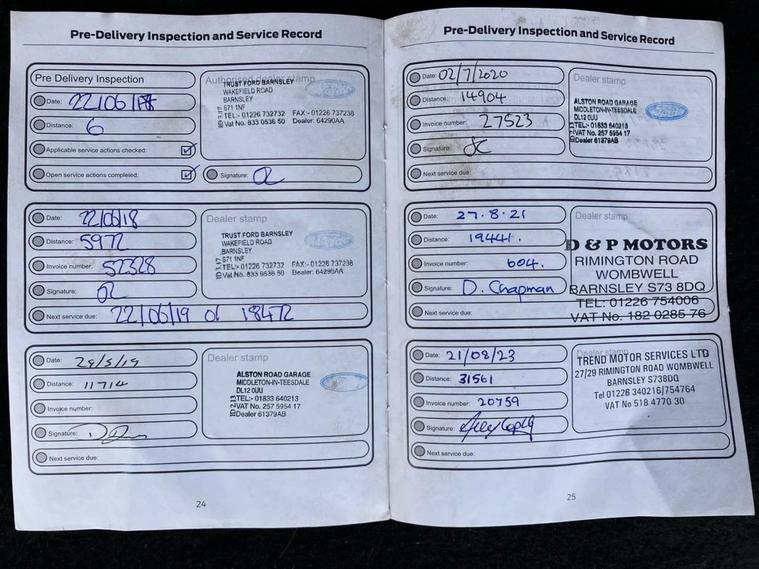 Pre-Delivery Inspection and Service Record
Pre Delivery Inspection
Date: 22/06/
Distance: 6
Applicable service actions checked:
Open service actions completed:
Authorised dealer stamp
TRUST FORD BARNSLEY
WAKEFIELD ROAD
BARNSLEY
S71 1NF
TEL:- 01226 732732 FAX:- 01226 737238
Vat No. 833 0536 50 Dealer: 64290AA
Signature:
Date: 22/06/18
Distance: 5972
Invoice number: 52328
Signature:
Next service due: 22/06/19 or 18472
Dealer stamp
TRUST FORD BARNSLEY
WAKEFIELD ROAD
BARNSLEY
S71 1NF
TEL:- 01226 732732 FAX:- 01226 737238
Vat No. 833 0536 50 Dealer: 64290AA
Date: 29/5/19
Distance: 11714
Invoice number:
Signature:
Next service due:
Dealer stamp
ALSTON ROAD GARAGE
MIDDLETON-IN-TEESDALE
DL12 0UU
TEL:- 01833 640213
VAT No. 257 5954 17
Dealer 61379AB
24
Pre-Delivery Inspection and Service Record
Date: 02/7/2020
Distance: 14904
Invoice number: 27523
Signature:
Next service due:
Dealer stamp
ALSTON ROAD GARAGE
MIDDLETON-IN-TEESDALE
DL12 0UU
TEL:- 01833 640213
VAT No. 257 5954 17
Dealer 61379AB
Date: 27.8.21
Distance: 19441.
Invoice number: 604.
Signature: D. Chapman
Next service due:
Dealer stamp
D & P MOTORS
RIMINGTON ROAD
WOMBWELL
BARNSLEY S73 8DQ
TEL: 01226 754006
VAT No. 182 0285 76
Date: 21/08/23
Distance: 31561
Invoice number: 20759
Signature:
Next service due:
Dealer stamp
TREND MOTOR SERVICES LTD
27/29 RIMINGTON ROAD WOMBWELL
BARNSLEY S738DQ
Tel 01226 340216/754764
VAT No 518 4770 30
25